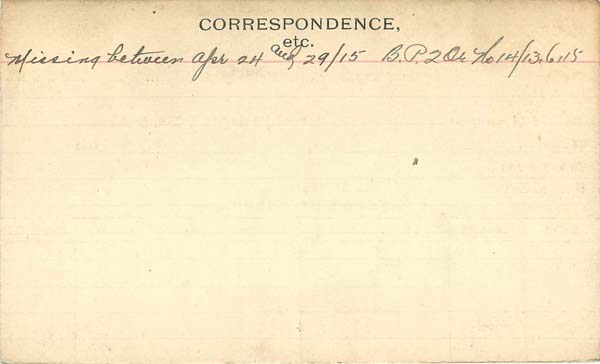 CORRESPONDENCE,
etc.
Missing between Apr 24 and 29/15 B.P.2 Or No 14/13.6.15